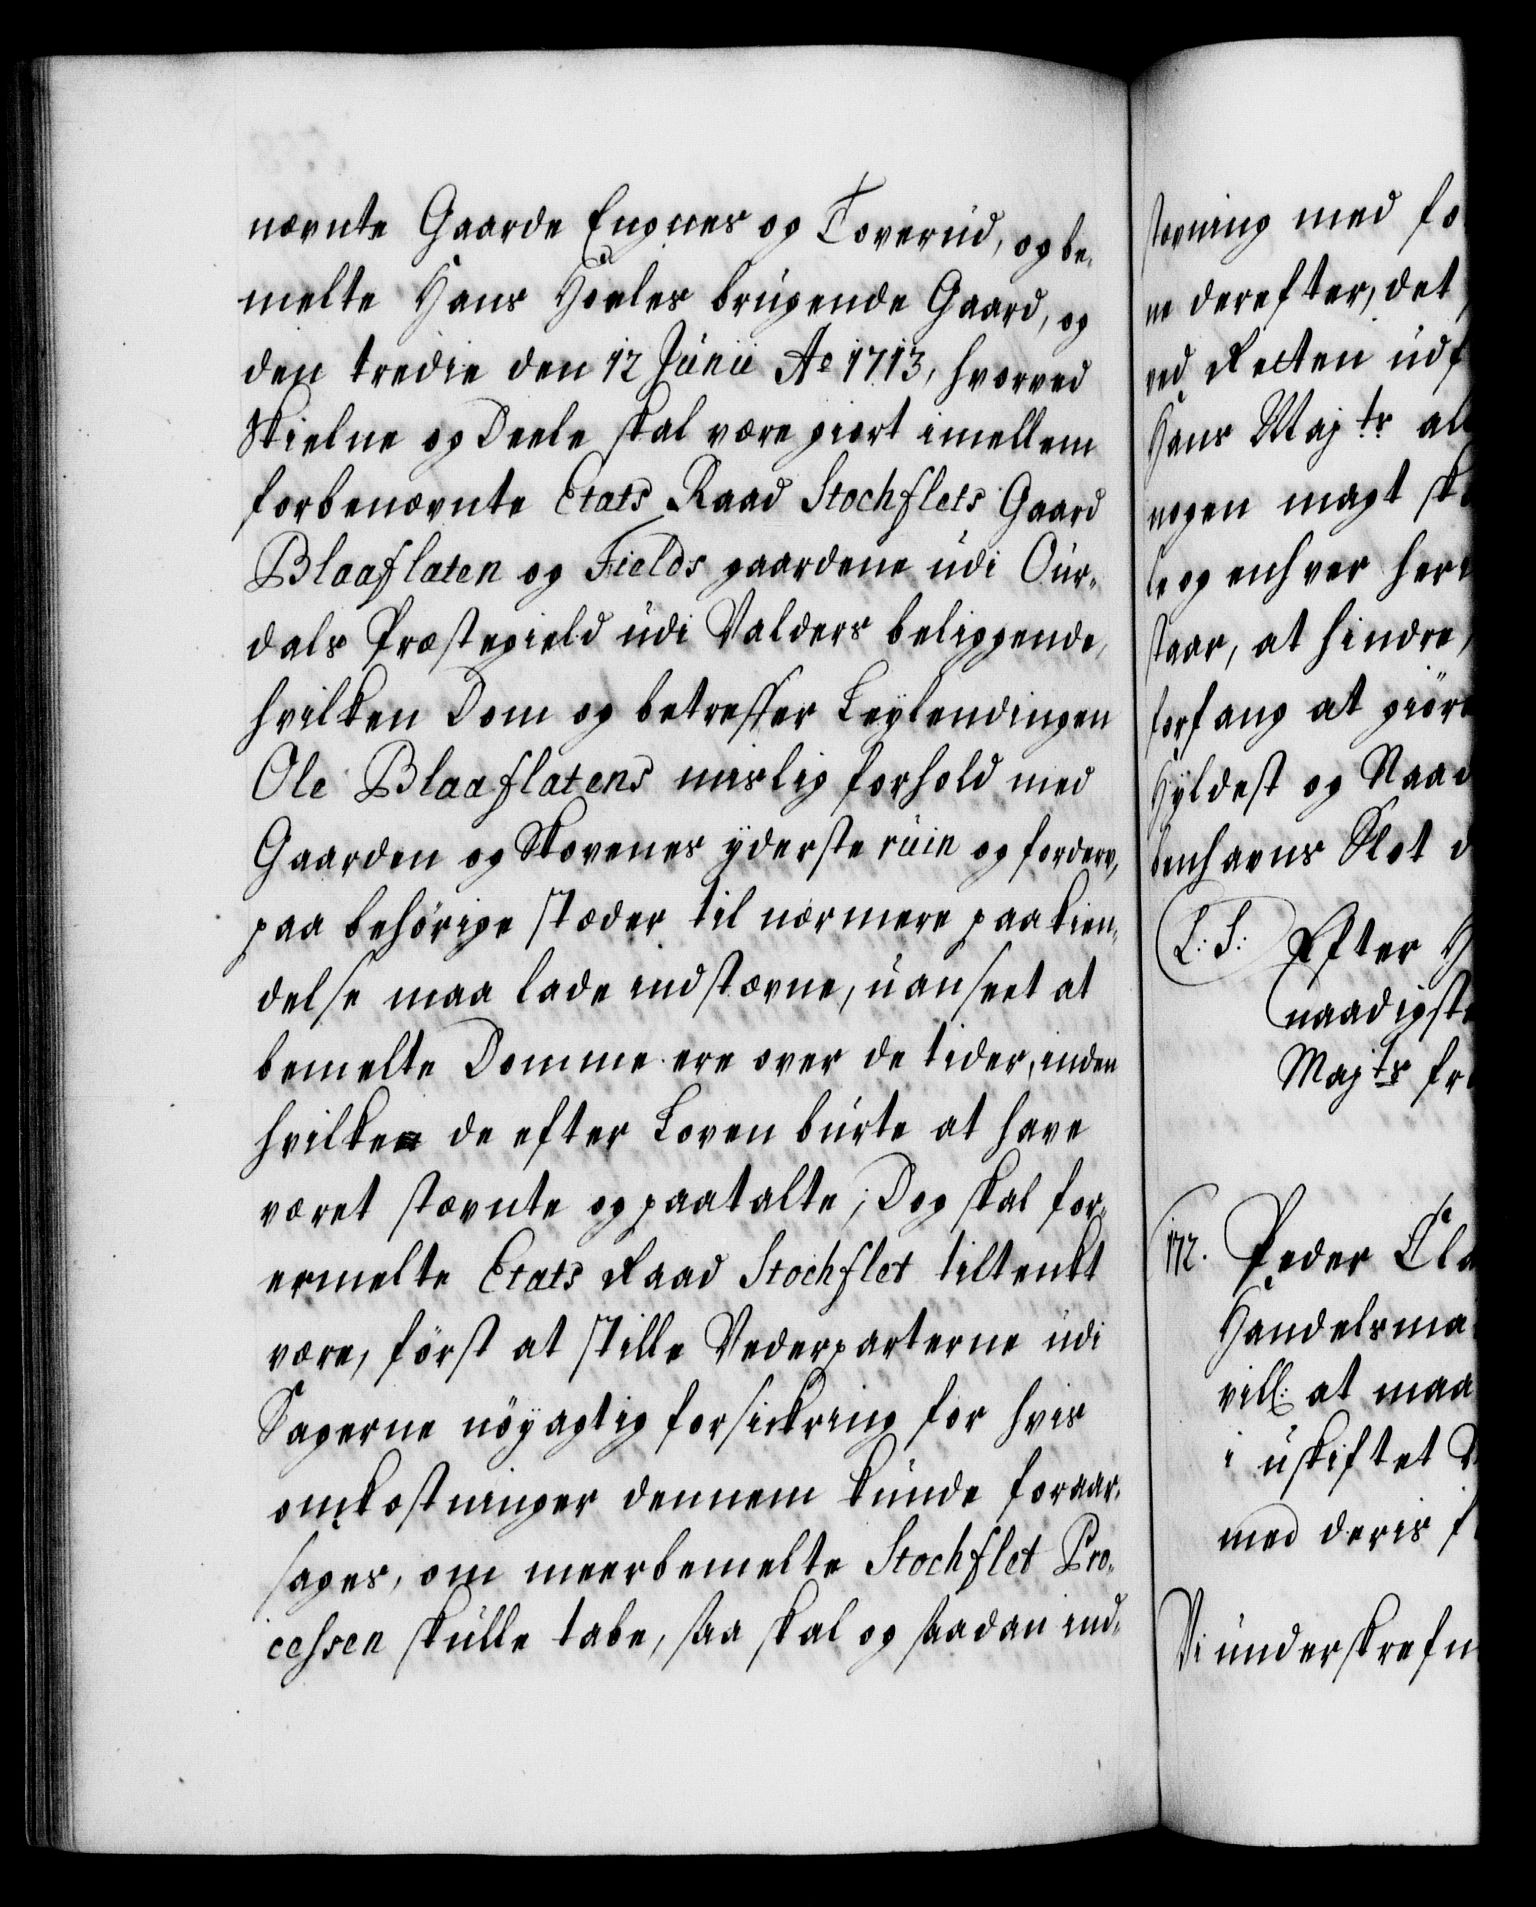 nævnte Gaarde Engnes og Toverud, og be-
melte Hans Hovles brugende Gaard, og
den tredie den 12 Junii Ao 1713, hvorved
Skielne og Deele skal være giort imellem
forbenævnte Etats Raad Stochflets Gaard
Blaaflaten og Fields gaardene udi Our-
dals Præstegield udi Valders beliggende,
hvilken Dom og betreffer Leylendingen
Ole Blaaflatens mislig forhold med
Gaarden og Skovenes yderste ruin og forderv,
paa behørige stæder til nærmere paakien-
delse maa lade indstævne, uanseet at
bemelte Domme ere over de tider, inden
hvilke de efter Loven burte at have
været stævnte og paatalte; Dog skal for-
ermelte Etats Raad Stochflet tiltenkt
være, først at stille Vederparterne udi
Sagerne nöyagtig forsickring for hvis
omkostninger dennem kunde foraar-
sages, om meerbemelte Stochflet Pro-
cessen skulle tabe, saa skal og saadan ind-
stævning med fo
ne derefter, det
ved Retten udf
Hans Majts al
nogen magt sk
le og enhver her
staar, at hindre,
forfang at giör
Hyldest og Naad
benhavns Slot d
(L: S:) Efter H
naadigst
Majts fr
172. Peder Cla
Handelsma
vill: at maa
i uskiftet
med deris f
Vi underskrefn